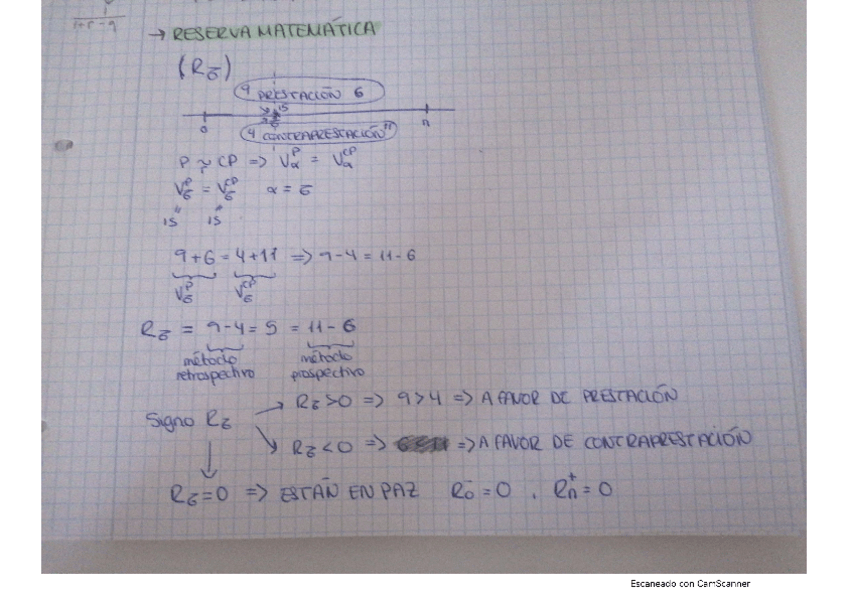 1
1+r-q
→ RESERVA MATEMÁTICA
(R_σ)
9 PRESTACIÓN 6
15
0 n
4 CONTRAPRESTACIÓN 11
P ~ CP => V_α^P = V_α^CP
V_σ^P = V_σ^CP α = σ
15 15
9+6 = 4+11 => 9-4 = 11-6
V_σ^P V_σ^CP
R_σ = 9-4 = 5 = 11-6
método método
retrospectivo prospectivo
R_σ > 0 => 9>4 => A FAVOR DE PRESTACIÓN
Signo R_σ
R_σ < 0 => => A FAVOR DE CONTRAPRESTACIÓN
R_σ = 0 => ESTÁN EN PAZ R_0^- = 0 . R_n^+ = 0
Escaneado con CamScanner